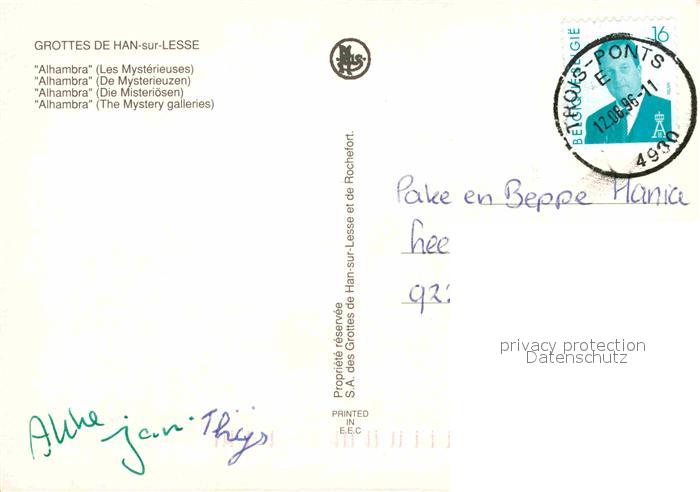 GROTTES DE HAN-sur-LESSE
"Alhambra" (Les Mystérieuses)
"Alhambra" (De Mysterieuzen)
"Alhambra" (Die Misteriösen)
"Alhambra" (The Mystery galleries)
16
BELGIQUE-BELGIË
TROIS-PONTS
E
12.08.96-11
4930
Pake en Beppe Hania
hee
92
privacy protection
Datenschutz
Propriété réservée
S.A. des Grottes de Han-sur-Lesse et de Rochefort.
PRINTED
IN
E.E.C
Akke jan Thijs